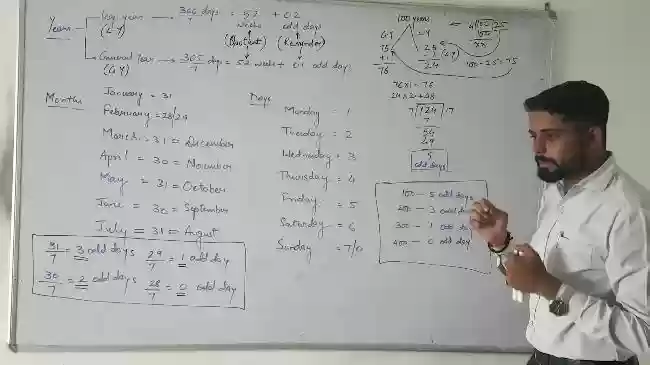 Years
Leap year → 366 days = 52 + 02
(LY)
weeks odd days
(Quotient) (Remainder)
General Year → 365/7 days = 52 weeks + 01 odd day
(GY)
Months
January = 31
February = 28/29
March = 31 = December
April = 30 = November
May = 31 = October
June = 30 = September
July = 31 = August
31/7 = 3 odd days 29/7 = 1 odd day
30/7 = 2 odd days 28/7 = 0 odd day
Days
Monday = 1
Tuesday = 2
Wednesday = 3
Thursday = 4
Friday = 5
Saturday = 6
Sunday = 7/0
100 years
GY LY
75 25
+1 -1 (GY)
76 24
4)100(25
100
xx
100-25=75
76x1=76
24x2=48
7)124(17
7
54
49
5
odd days
100 - 5 odd days
200 - 3 odd days
300 - 1 odd day
400 - 0 odd day